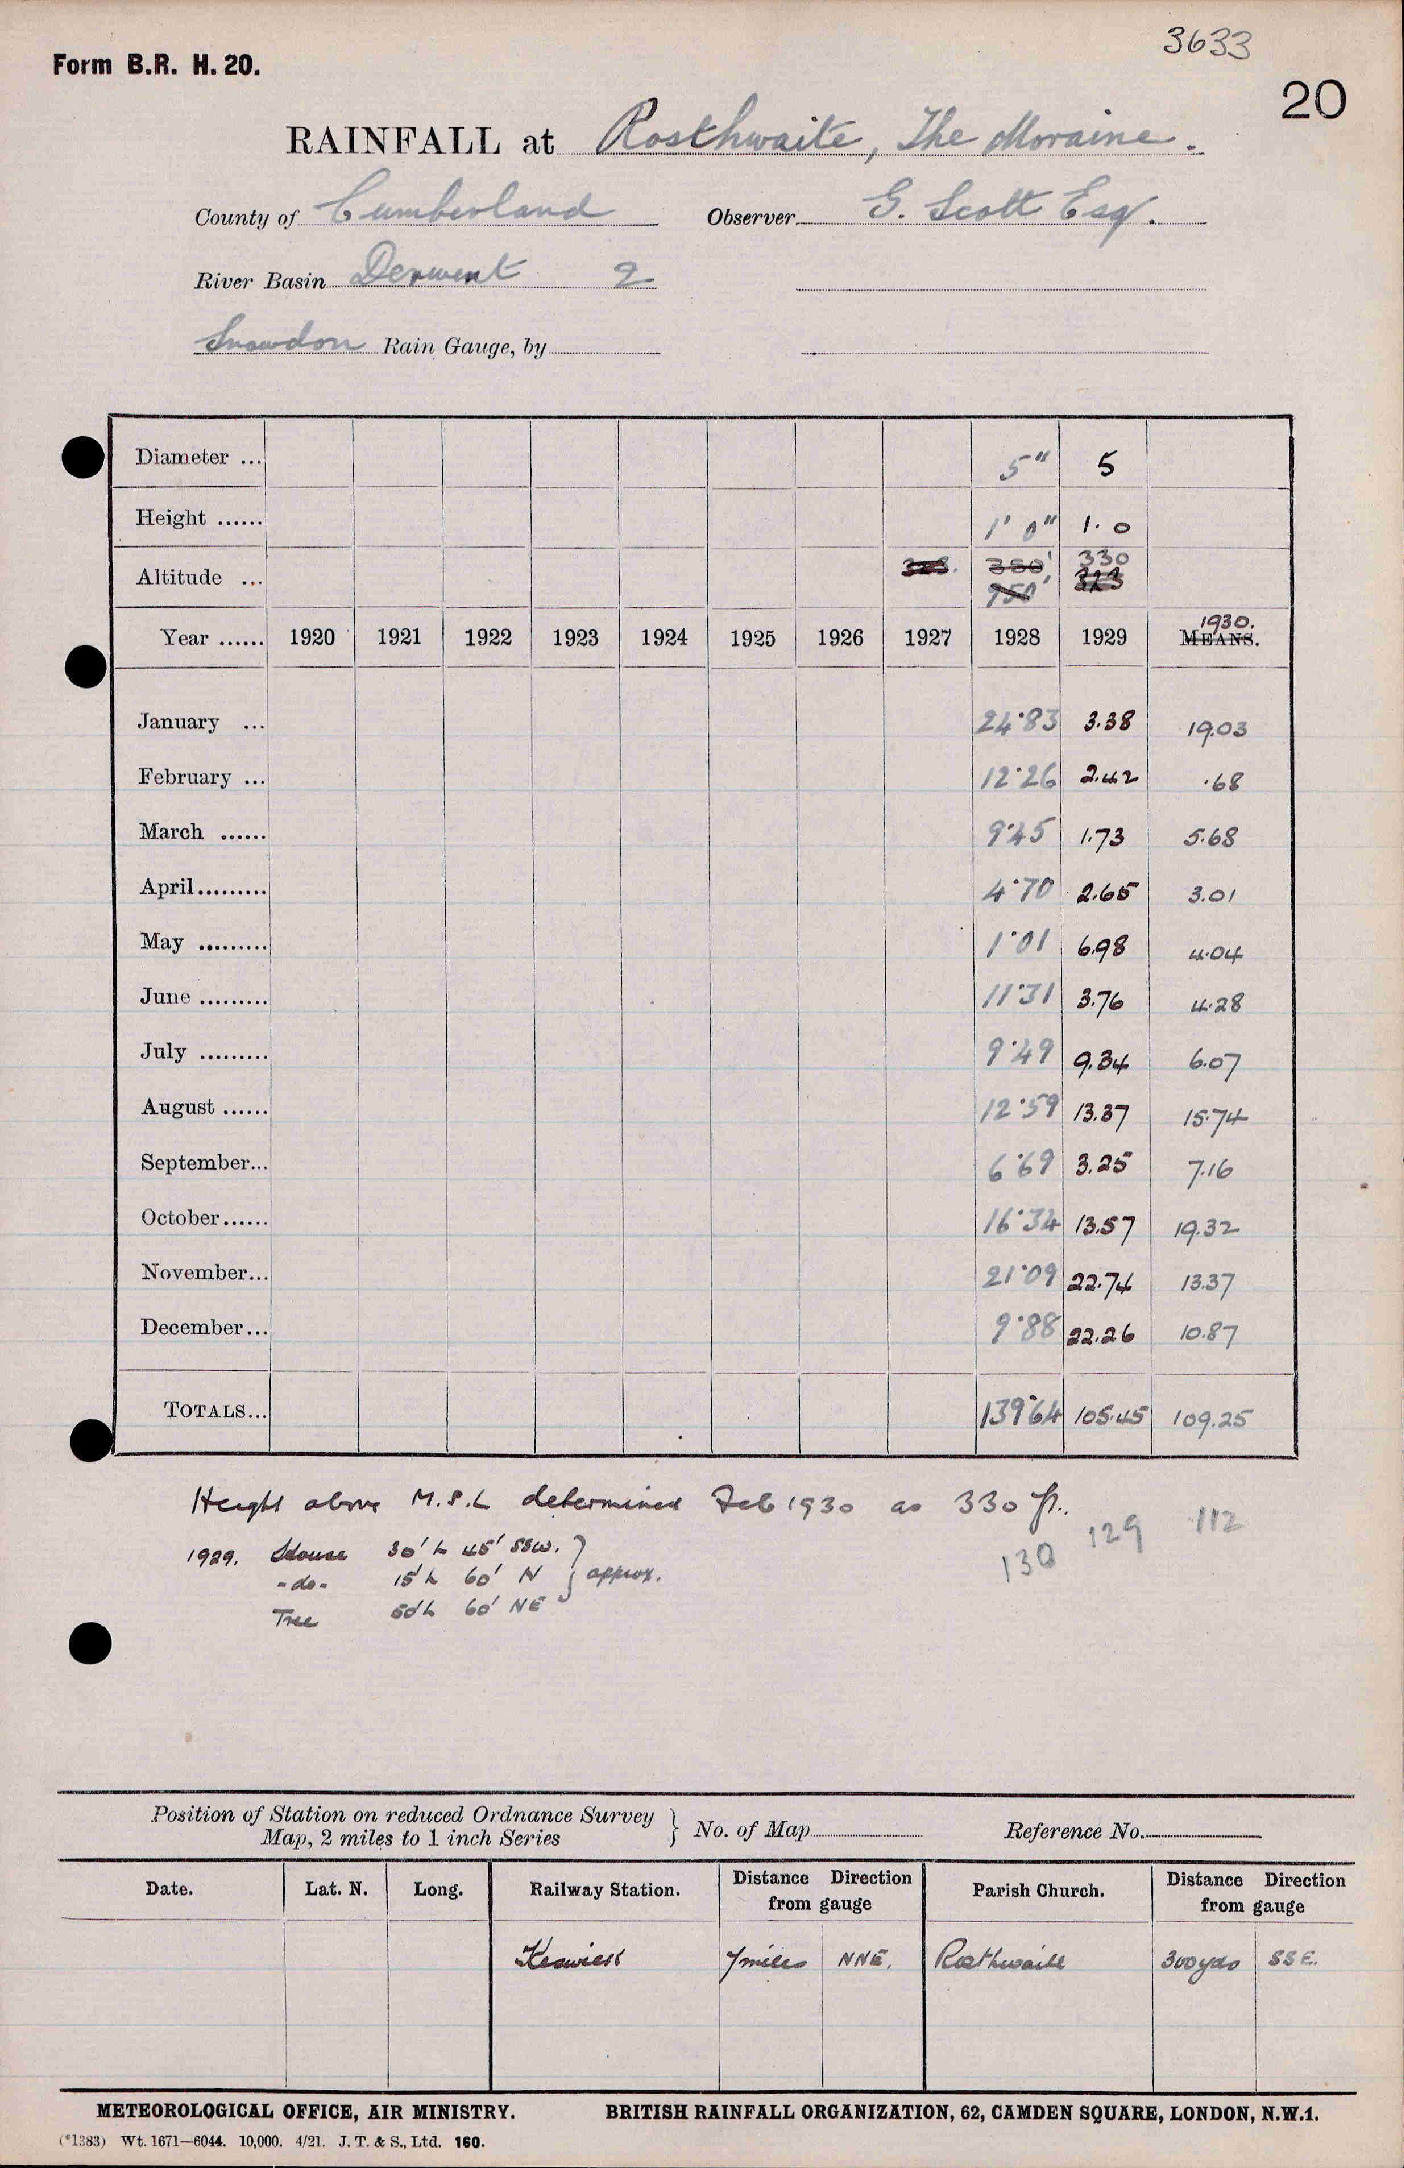 3633
Form B.R. H. 20.
20
RAINFALL at Rosthwaite, The Moraine.
County of Cumberland Observer G. Scott Esq.
River Basin Derwent 2
Snowdon Rain Gauge, by
Diameter ... 5" 5
Height ...... 1' 0" 1.0
330
Altitude ... 380' 323
950'
1930.
Year ...... 1920 1921 1922 1923 1924 1925 1926 1927 1928 1929 MEANS.
January ... 24.83 3.38 19.03
February ... 12.26 2.42 .68
March ...... 9.45 1.73 5.68
April......... 4.70 2.65 3.01
May ......... 1.01 6.98 4.04
June ......... 11.31 3.76 4.28
July ......... 9.49 9.34 6.07
August ...... 12.59 13.37 15.74
September... 6.69 3.25 7.16
October...... 16.34 13.57 19.32
November... 21.09 22.74 13.37
December... 9.88 22.26 10.87
TOTALS... 139.64 105.45 109.25
Height above M.S.L determined Feb 1930 as 330 ft.
130 129 112
1929. House 30' h 45' SSW. }
-do- 15' h 60' N } approx.
Tree 50' h 60' NE
Position of Station on reduced Ordnance Survey } No. of Map Reference No.
Map, 2 miles to 1 inch Series
Date. Lat. N. Long. Railway Station. Distance Direction Parish Church. Distance Direction
from gauge from gauge
Keswick 7 miles NNE. Rosthwaite 300 yds SSE.
METEOROLOGICAL OFFICE, AIR MINISTRY. BRITISH RAINFALL ORGANIZATION, 62, CAMDEN SQUARE, LONDON, N.W.1.
(*1383) Wt. 1671—6044. 10,000. 4/21. J. T. & S., Ltd. 160.